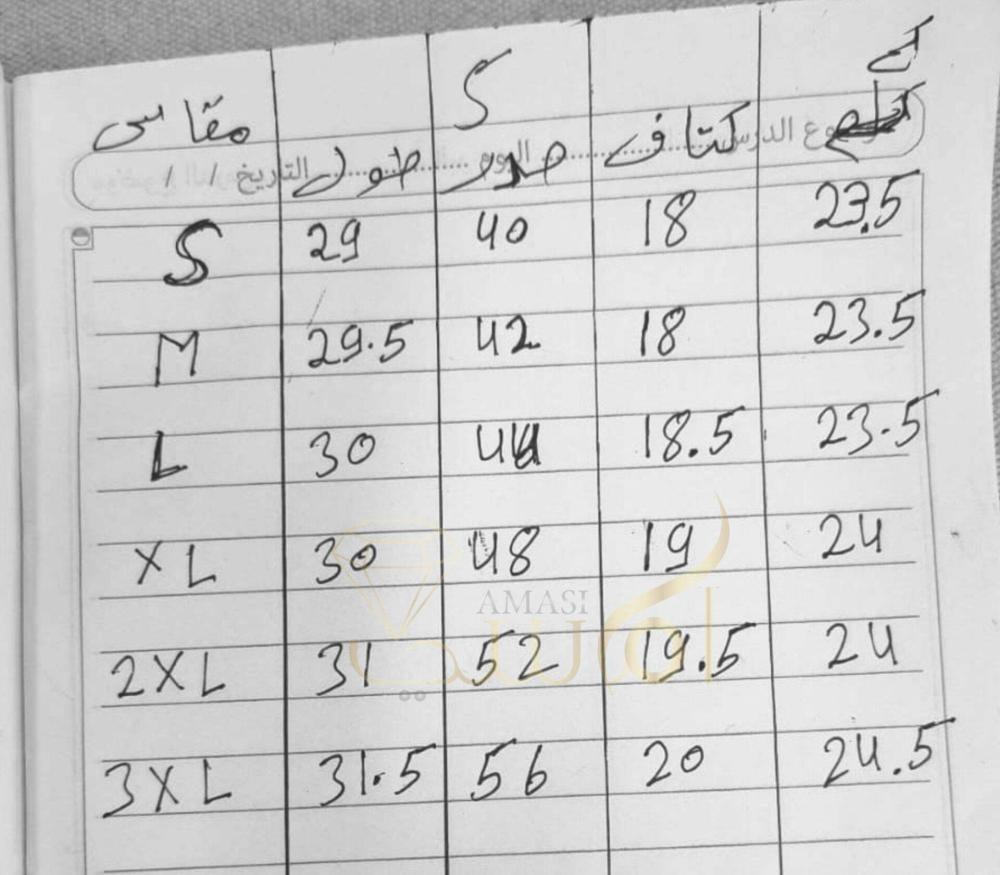 S كم
مقاس طول صدر كتاف
موضوع الدرس اليوم التاريخ / /
S 29 40 18 23.5
M 29.5 42 18 23.5
L 30 44 18.5 23.5
XL 30 48 19 24
AMASI
أماسي
2XL 31 52 19.5 24
3XL 31.5 56 20 24.5